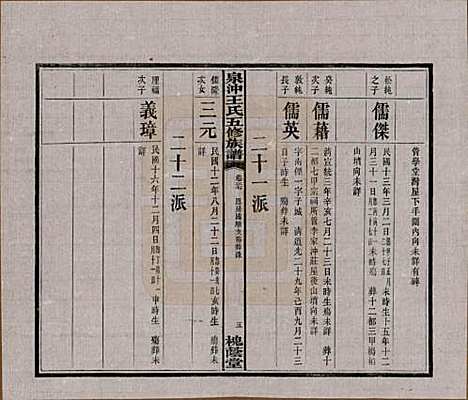 管學堂灣屋下手園內向未詳有碑
松純
之子
儒傑
民國十三年三月二日
未時生
十五年十二
月三十一日
未時殤
葬十二都三甲楊
山墳向未詳
癸純
次子
儒藉
清宣統三年辛亥七月二十三日未時生殤葬十
二都七甲宗祠所管李家沖莊屋後山墳向未詳
敦純
長子
儒英
字南傑一字子城
清道光二十九年己酉九月二十三
日子時生
二十一派
泉沖王氏五修族譜
五
槐蔭堂
儒
次女
三元
民國十二年八月二十二日
亥時生
殤葬未
詳
二十二派
厘福
次子
義璋
民國十六年十二月四日
申時生
殤葬未
詳